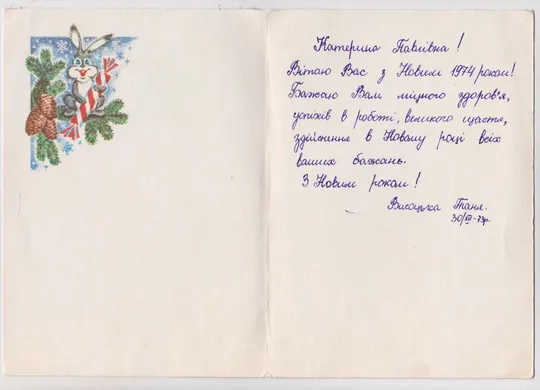 Катерина Павлівна!
Вітаю Вас з Новим 1974 роком!
Бажаю Вам міцного здоров'я,
успіхів в роботі, великого щастя,
здійснення в Новому році всіх
ваших бажань.
З Новим роком!
Висоцька Таня.
30/XII-73р.